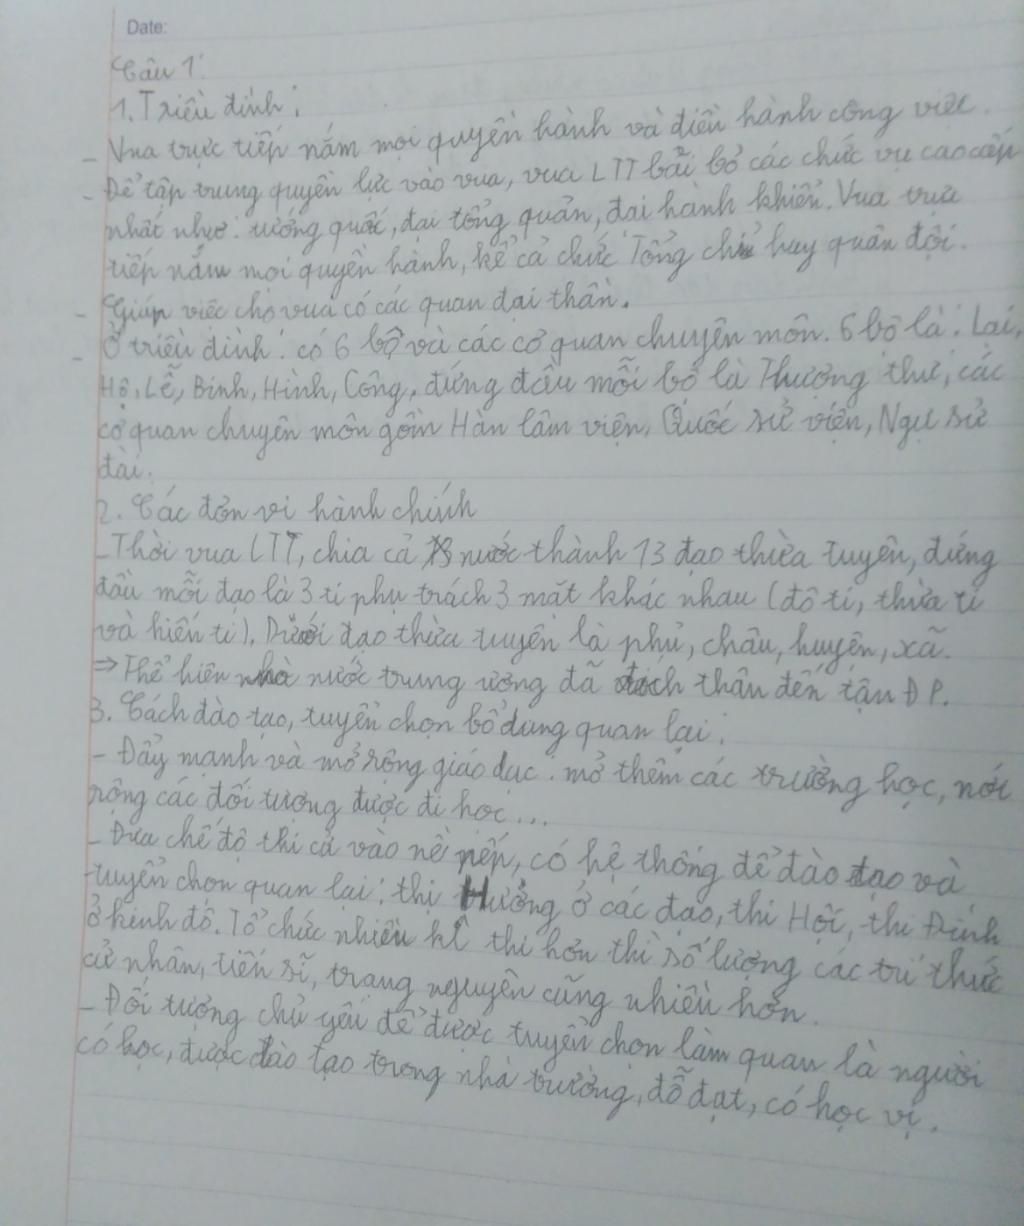 Date:
Câu 1:
1. Triều đình:
- Vua trực tiếp nắm mọi quyền hành và điều hành công việc.
- Để tập trung quyền lực vào vua, vua LTT bãi bỏ các chức vụ cao cấp
nhất như: tướng quốc, đại tổng quản, đại hành khiển. Vua trực
tiếp nắm mọi quyền hành, kể cả chức Tổng chỉ huy quân đội.
- Giúp việc cho vua có các quan đại thần.
- Ở triều đình: có 6 bộ và các cơ quan chuyên môn. 6 bộ là: Lại,
Hộ, Lễ, Binh, Hình, Công, đứng đầu mỗi bộ là Thượng thư, các
cơ quan chuyên môn gồm Hàn lâm viện, Quốc sử viện, Ngự sử
đài.
2. Các đơn vị hành chính
- Thời vua LTT, chia cả nước thành 13 đạo thừa tuyên, đứng
đầu mỗi đạo là 3 ti phụ trách 3 mặt khác nhau (đô ti, thừa ti
và hiến ti). Dưới đạo thừa tuyên là phủ, châu, huyện, xã.
⇒ Thể hiện nhà nước trung ương đã thân đến tận ĐP.
3. Cách đào tạo, tuyển chọn bổ dụng quan lại:
- Đẩy mạnh và mở rộng giáo dục: mở thêm các trường học, nới
rộng các đối tượng được đi học...
- Đưa chế độ thi cử vào nề nếp, có hệ thống để đào tạo và
tuyển chọn quan lại: thi Hương ở các đạo, thi Hội, thi Đình
ở kinh đô. Tổ chức nhiều kì thi hơn thì số lượng các trí thức
cử nhân, tiến sĩ, trạng nguyên cũng nhiều hơn.
- Đối tượng chủ yếu để được tuyển chọn làm quan là người
có học, được đào tạo trong nhà trường, đỗ đạt, có học vị.